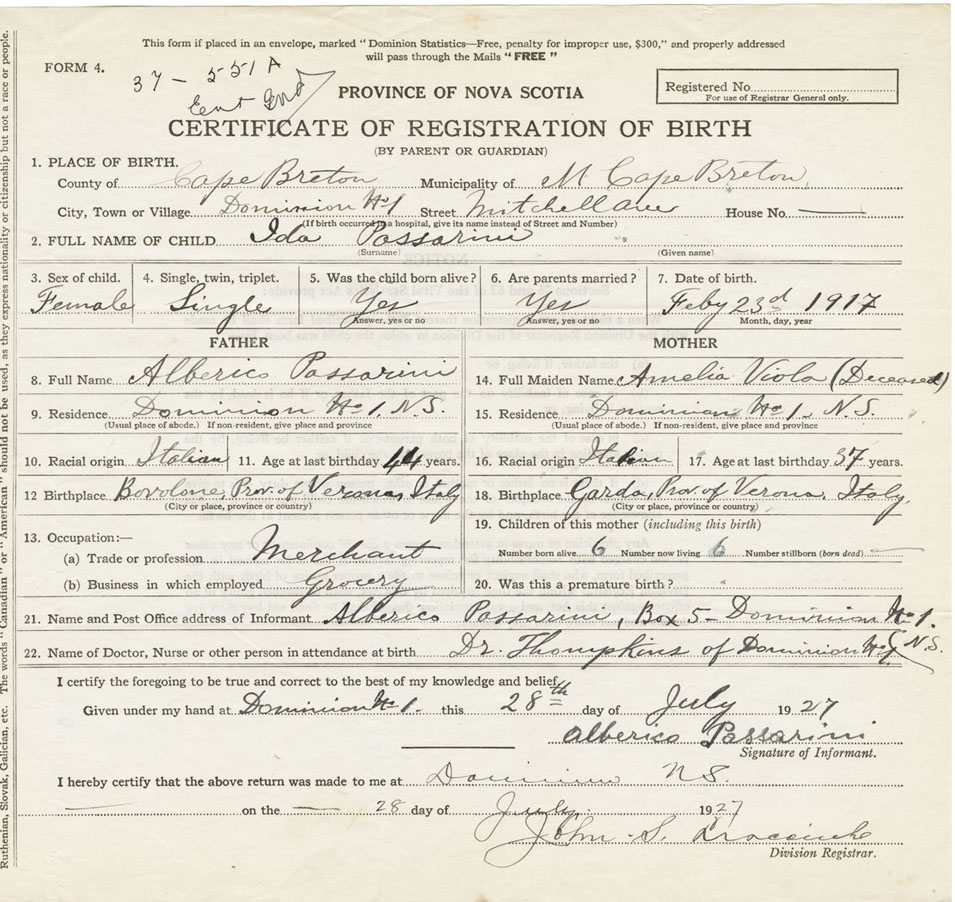 This form if placed in an envelope, marked “Dominion Statistics—Free, penalty for improper use, $300,” and properly addressed
will pass through the Mails “FREE”
FORM 4.
37 - 551 A
PROVINCE OF NOVA SCOTIA
Registered No.
For use of Registrar General only.
CERTIFICATE OF REGISTRATION OF BIRTH
(BY PARENT OR GUARDIAN)
1. PLACE OF BIRTH.
County of Cape Breton Municipality of M Cape Breton
City, Town or Village Dominion No 1 Street Mitchell ave House No. —
(If birth occurred in a hospital, give its name instead of Street and Number)
2. FULL NAME OF CHILD Ida Passarini
(Surname) (Given name)
3. Sex of child. 4. Single, twin, triplet. 5. Was the child born alive? 6. Are parents married? 7. Date of birth.
Female Single Yes Yes Feby 23rd 1917
Answer, yes or no Answer, yes or no Month, day, year
FATHER MOTHER
8. Full Name Alberico Passarini 14. Full Maiden Name Amelia Viola (Deceased)
9. Residence Dominion No 1. N.S. 15. Residence Dominion No 1. N.S.
(Usual place of abode.) If non-resident, give place and province (Usual place of abode.) If non-resident, give place and province
10. Racial origin Italian 11. Age at last birthday 44 years. 16. Racial origin Italian 17. Age at last birthday 37 years.
12 Birthplace Bovolone, Prov. of Verona, Italy 18. Birthplace Garda, Prov. of Verona, Italy.
(City or place, province or country) (City or place, province or country)
19. Children of this mother (including this birth)
13. Occupation:—
(a) Trade or profession Merchant Number born alive 6 Number now living 6 Number stillborn (born dead) —
(b) Business in which employed Grocery 20. Was this a premature birth?
21. Name and Post Office address of Informant Alberico Passarini, Box 5 - Dominion No 1.
22. Name of Doctor, Nurse or other person in attendance at birth Dr. Thompkins of Dominion No 1 N.S.
I certify the foregoing to be true and correct to the best of my knowledge and belief,
Given under my hand at Dominion No 1. this 28th day of July 1927
Alberico Passarini
Signature of Informant.
I hereby certify that the above return was made to me at Dominion N.S.
— on the — 28 day of July 1927
John S.
Division Registrar.
Ruthenian, Slovak, Galician, etc. The words “Canadian” or “American” should not be used, as they express nationality or citizenship but not a race or people.